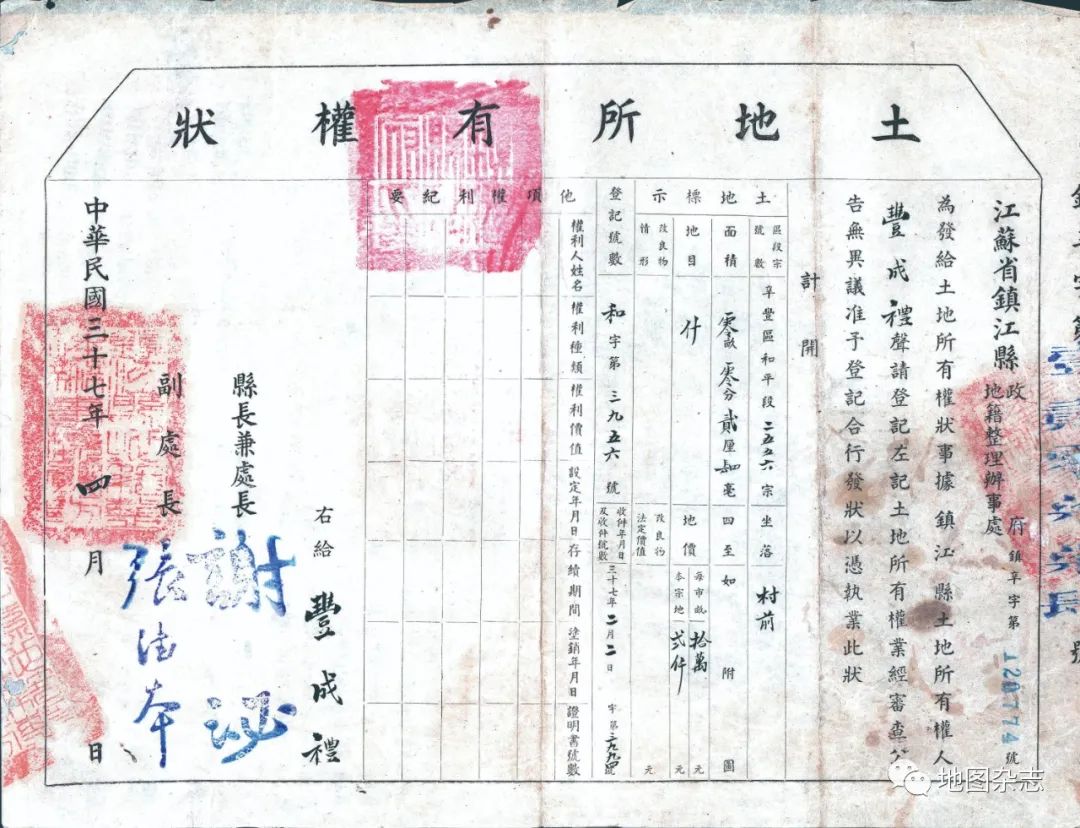 土地所有權狀
江蘇省鎮江縣政府地籍整理辦事處 鎮辛字第120774號
為發給土地所有權狀事據 鎮江縣土地所有權人
豐成禮聲請登記左記土地所有權業經審查公
告無異議准予登記合行發狀以憑執業此狀
計開
土地標示
區段宗號數 辛豐區和平段二五五六宗 坐落 村前
面積 零畝零分貳厘肆毫 四至如附圖
地目 什 地價 每市畝 拾萬元 本宗地 弍仟元
改良物情形 改良物法定價值 元
登記號數 和字第三九五六號 收件年月日及收件號數 三十七年二月二日 字第號
他項權利紀要
權利人姓名 權利種類 權利價值 設定年月日 存續期間 塗銷年月日 證明書號數
右給 豐成禮
縣長兼處長 謝
副處長 張
中華民國三十七年四月 日
地图杂志